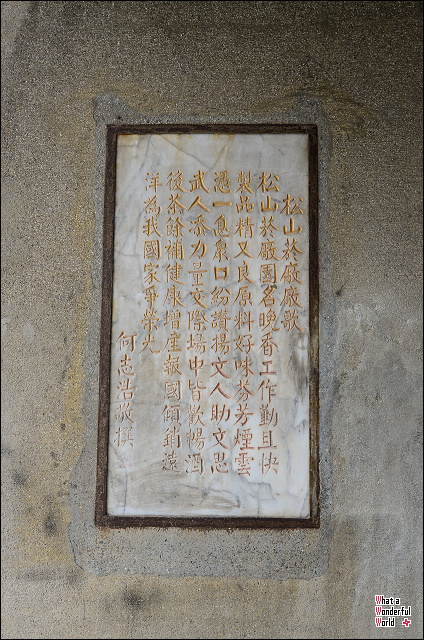 松山菸廠廠歌
松山菸廠園名晚香工作勤且快
製品精又良原料好味芬芳煙雲
憑一息眾口紛讚揚文人助文思
武人添力量交際場中皆歡暢酒
後茶餘補健康增產報國傾銷遠
洋為我國家爭榮光
何志浩敬撰
What a
Wonderful
World